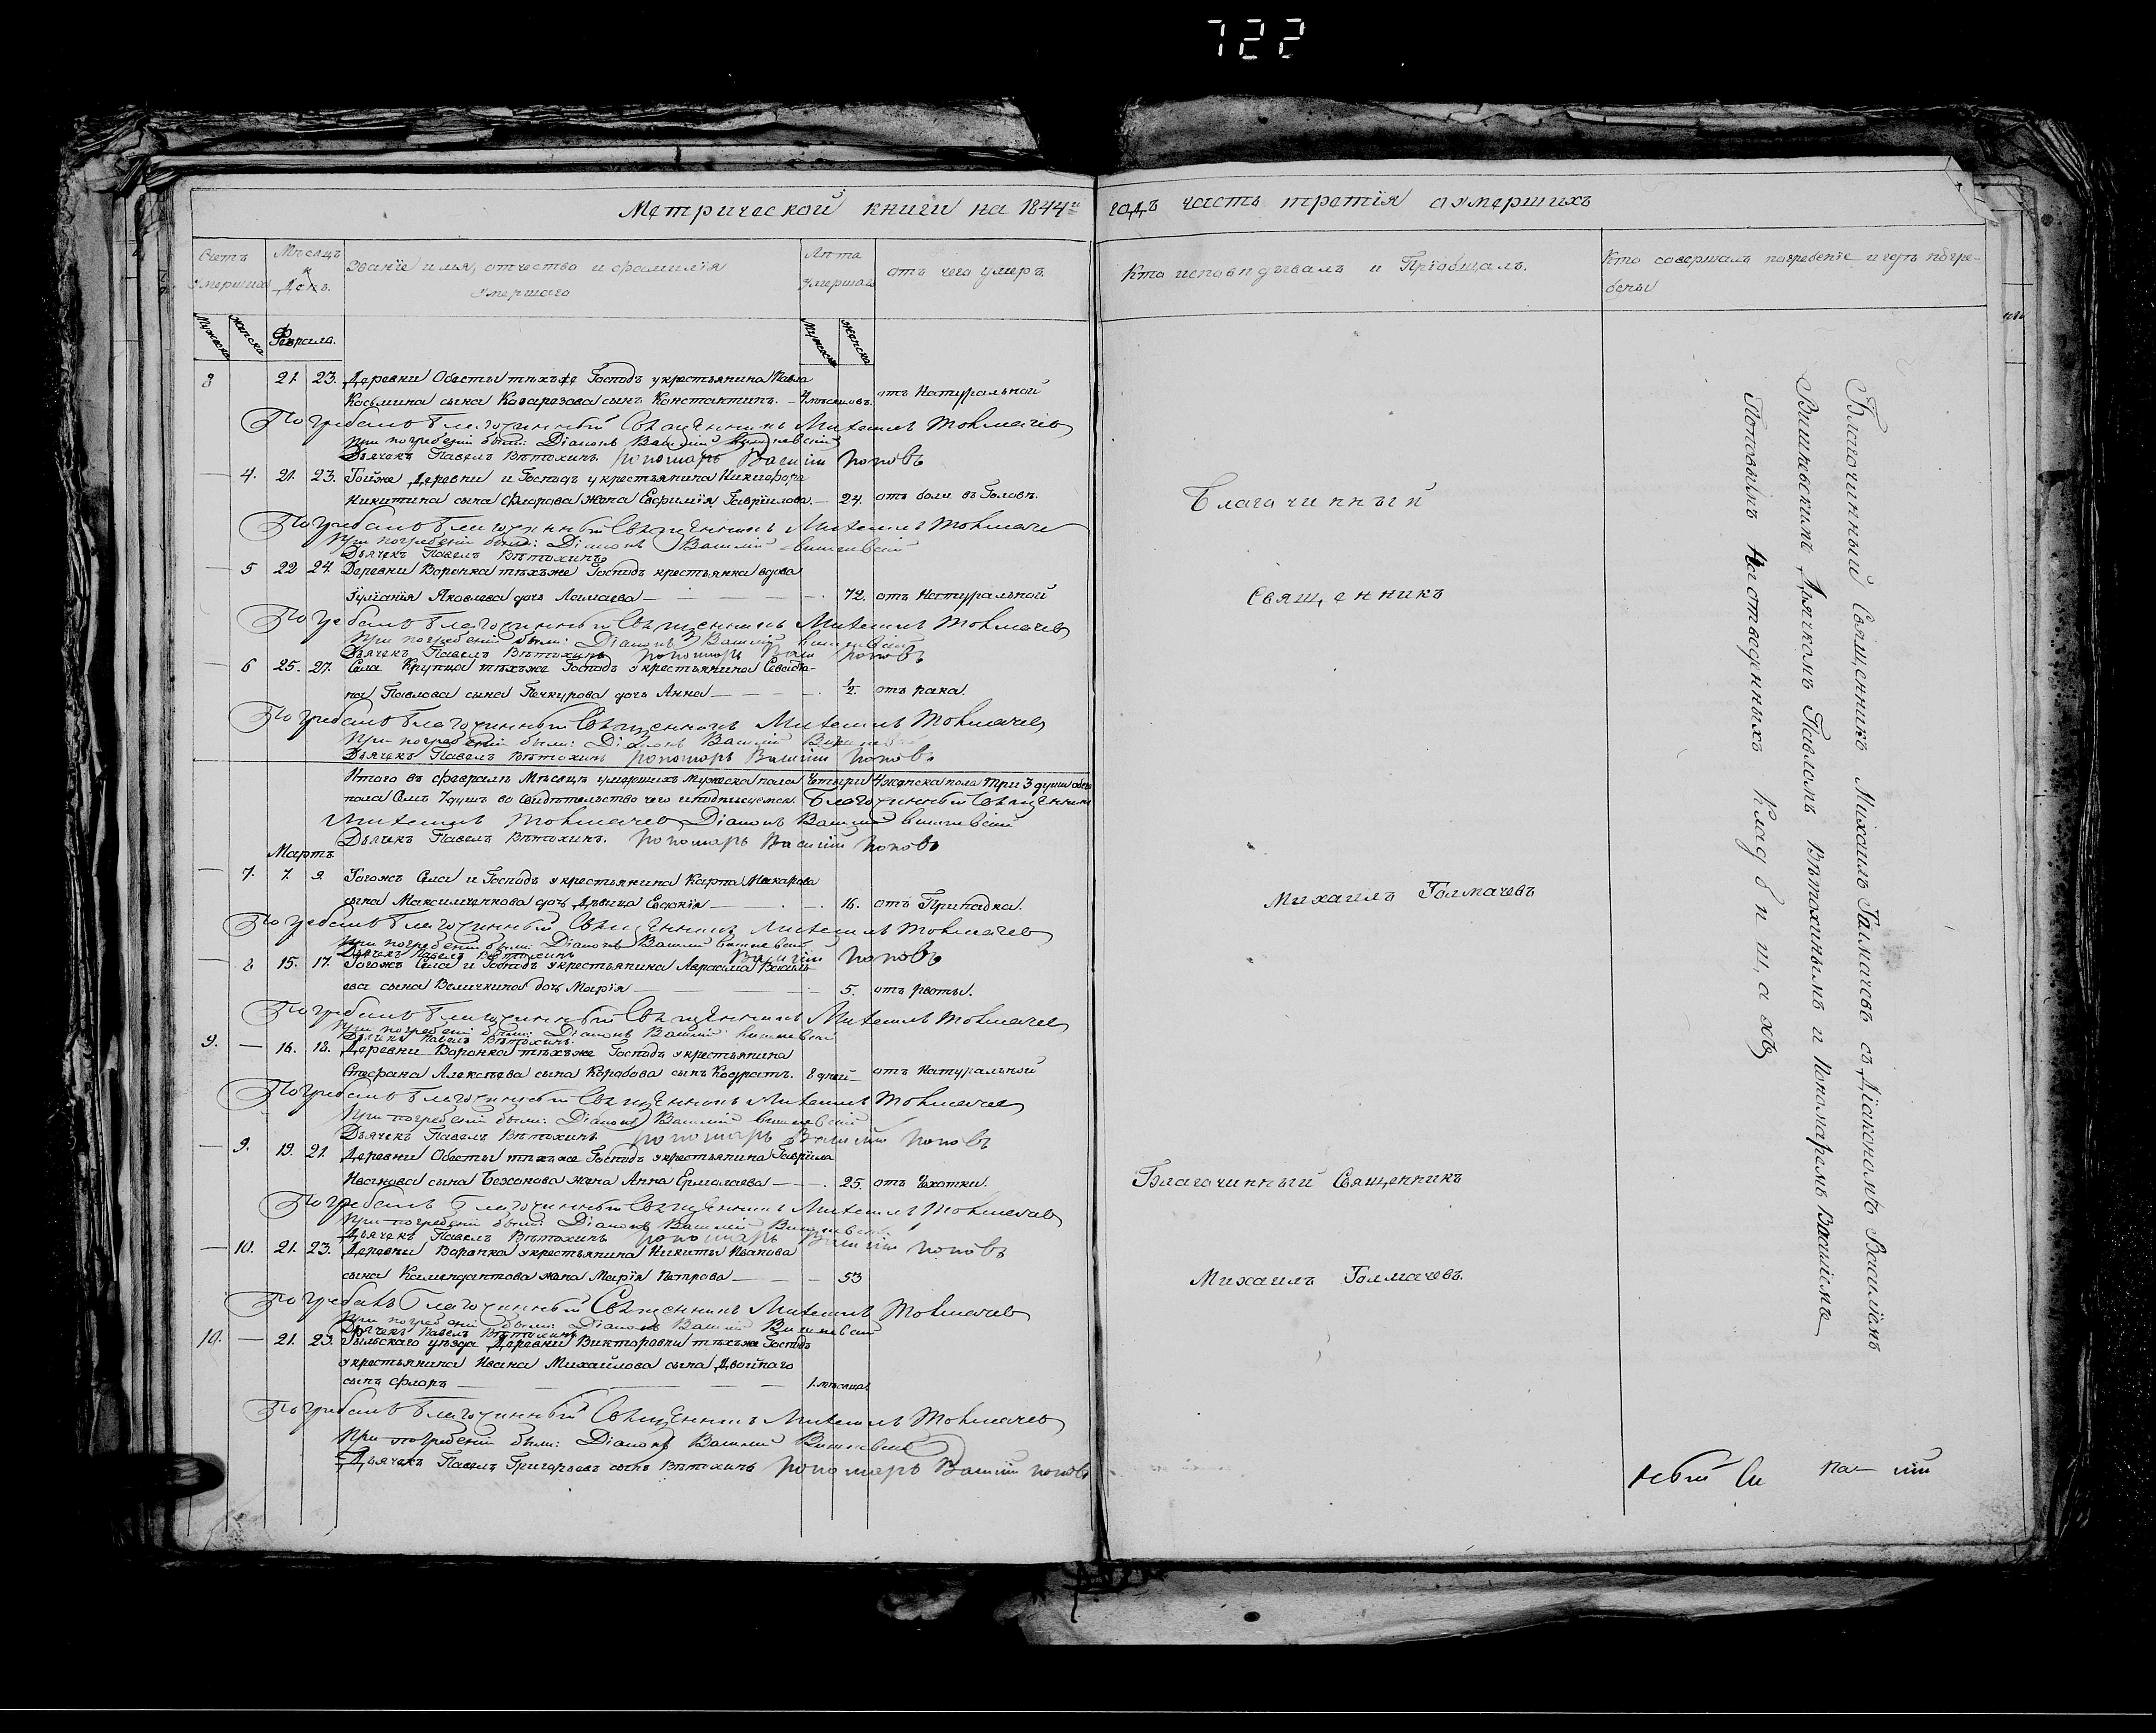 722
Метрической книги на 1844й годъ часть третія о умершихъ
Счетъ умершихъ
Мѣсяцъ и День.
Званіе имя, отчество и фамилія умершаго
Лѣта умершаго
отъ чего умеръ.
Кто исповѣдывалъ и Пріобщалъ.
Кто совершалъ погребеніе и гдѣ погребены
Мужеска
Женска
Февраль.
Мужеска
Женска
3 21. 23. Деревни Обесты тѣхъже Господъ крестьянина Павла
Косьмина сына Козарезова сынъ Константинъ. — 4 мѣсяцовъ. отъ Натуральной
Погребалъ Благочинный Священникъ Михаилъ Толмачевъ
При погребеніи были: Діаконъ Василій Вишневскій
Дьячекъ Павелъ Вѣтохинъ Пономарь Василій Поповъ
— 4. 21. 23. Тойже Деревни и Господъ крестьянина Никифора
Никитина сына Флорова жена Евфимія Гаврилова. — 24. отъ боли въ Головѣ.
Погребалъ Благочинный Священникъ Михаилъ Толмачев
При погребеніи были: Діаконъ Василій Вишневскій
Дьячекъ Павелъ Вѣтохинъ
— 5 22 24. Деревни Воронка тѣхъже Господъ крестьянка вдова
Іуліанія Яковлева дочь — 72. отъ Натуральной
Погребалъ Благочинный Священникъ Михаилъ Толмачевъ
При погребеніи были: Діаконъ Василій Вишневскій
Дьячекъ Павелъ Вѣтохинъ Пономарь Поповъ
— 6 25. 27. Села Крупца тѣхъже Господъ крестьянина Севастья-
на Павлова сына Печкурова дочь Анна — 1/2. отъ рака.
Погребалъ Благочинный Священникъ Михаилъ Толмачевъ
При погребеніи были: Діаконъ Василій
Дьячекъ Павелъ Вѣтохинъ Пономарь Василій Поповъ
Итого въ февралѣ Мѣсяцѣ умершихъ мужеска пола Четыри 4 женска пола Три 3 души обоего
пола Семь 7 душъ во Свидѣтельство чего и подписуемся. Благочинный Священникъ
Михаилъ Толмачевъ Діаконъ Василій Вишневскій
Дьячекъ Павелъ Вѣтохинъ. Пономарь Василій Поповъ
Мартъ
— 7. 7. 9 Тогожъ Села и Господъ крестьянина Карпа Макарова
сына Максимченкова дочь Дѣвица Евфимія — 16. отъ Припадка.
Погребалъ Благочинный Священникъ Михаилъ Толмачевъ
При погребеніи были: Діаконъ Василій Вишневскій
Дьячекъ Павелъ Вѣтохинъ Василій Поповъ
— 8 15. 17. Тогожъ Села и Господъ крестьянина Герасима Василь-
ева сына Величкина дочь Марія — 5. отъ рвоты.
Погребалъ Благочинный Священникъ Михаилъ Толмачевъ
При погребеніи были: Діаконъ Василій Вишневскій
Дьячекъ Павелъ Вѣтохинъ.
9. — 16. 18. Деревни Воронка тѣхъже Господъ крестьянина
Стефана Алексѣева сына Коробова сынъ Кодратъ. 8 дней — отъ Натуральной
Погребалъ Благочинный Священникъ Михаилъ Толмачевъ
При погребеніи были: Діаконъ Василій Вишневскій
Дьячекъ Павелъ Вѣтохинъ Пономарь Василій Поповъ
— 9. 19. 21. Деревни Обесты тѣхъже Господъ крестьянина Гавріила
Иванова сына Бежонова жена Анна Ермолаева — 25. отъ Чахотки.
Погребалъ Благочинный Священникъ Михаилъ Толмачевъ
При погребеніи были: Діаконъ Василій Вишневскій
Дьячекъ Павелъ Вѣтохинъ Пономарь Василій Поповъ
— 10. 21. 23. Деревни Воронка крестьянина Никиты Иванова
сына Комендантова жена Марія Петрова — 53
Погребалъ Благочинный Священникъ Михаилъ Толмачевъ
При погребеніи были: Діаконъ Василій Вишневскій
Дьячекъ Павелъ Вѣтохинъ
10. — 21. 23. Рыльскаго уѣзда Деревни Викторовки тѣхъже Господъ
крестьянина Ивана Михайлова сына Двойнаго
сынъ Флоръ — 1. мѣсяцъ
Погребалъ Благочинный Священникъ Михаилъ Толмачевъ
При погребеніи были: Діаконъ Василій Вишневскій
Дьячекъ Павелъ Григорьевъ сынъ Вѣтохинъ Пономарь Василій Поповъ
Благочинный
Священникъ
Михаилъ Толмачевъ
Благочинный Священникъ
Михаилъ Толмачевъ.
Благочинный Священникъ Михаилъ Толмачевъ съ Діакономъ Василіемъ
Вишневскимъ Дьячкомъ Павломъ Вѣтохинымъ и Пономаремъ Василіемъ
Поповымъ На отведенныхъ Кладбищахъ